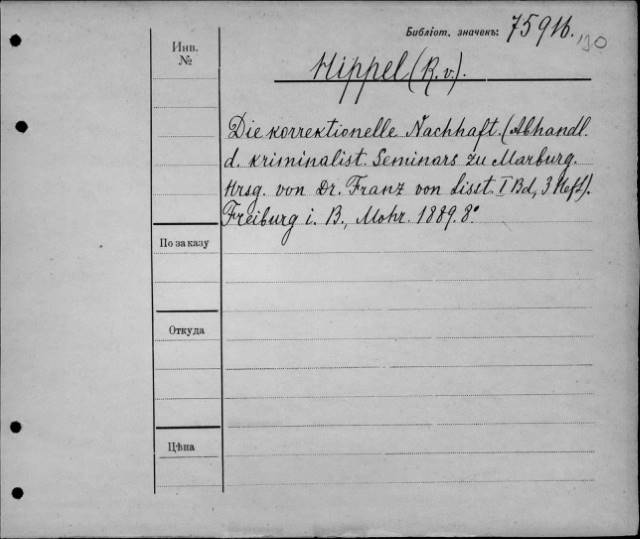 Библіот. значекъ: 75916.
190
Инв.
№
Hippel (R. v.).
Die korrektionelle Nachhaft. (Abhandl.
d. kriminalist. Seminars zu Marburg.
Hrsg. von Dr. Franz von Liszt. I Bd, 3 Heft).
Freiburg i. B., Mohr. 1889. 8°
По заказу
Откуда
Цѣна